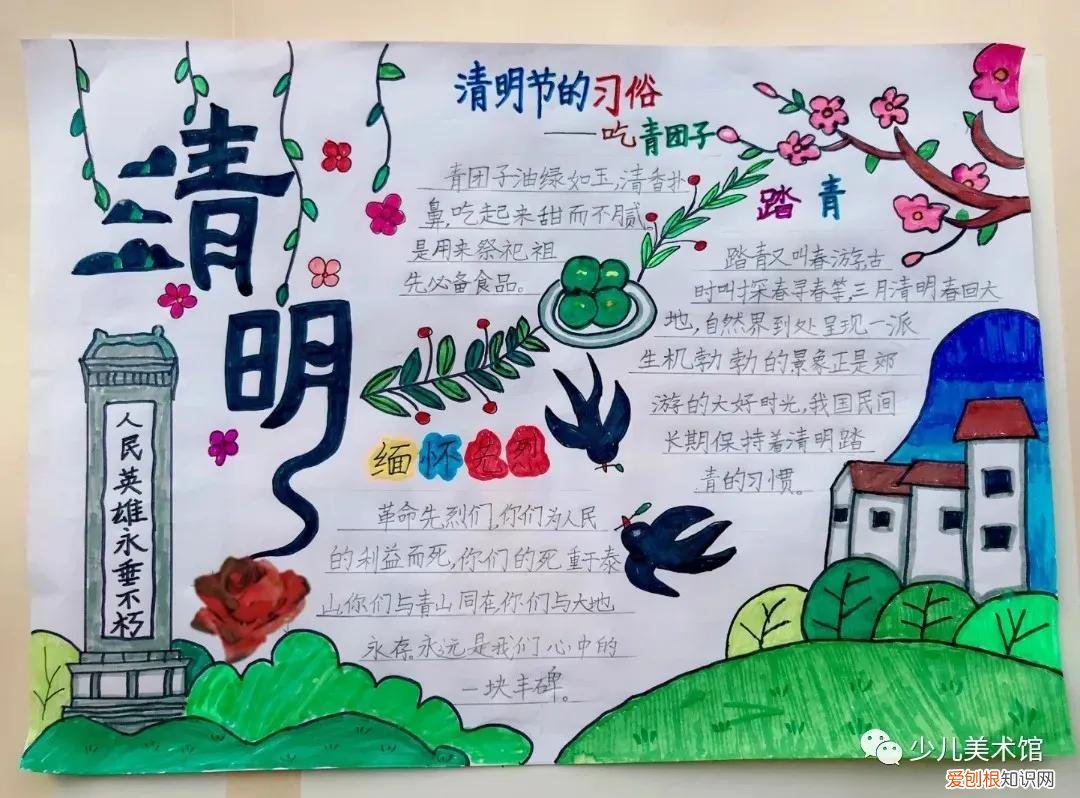 清明
清明节的习俗
——吃青团子
青团子油绿如玉,清香扑
鼻,吃起来甜而不腻
是用来祭祀祖
先必备食品。
踏青
踏青又叫春游,古
时叫探春寻春等,三月清明春回大
地,自然界到处呈现一派
生机勃勃的景象正是郊
游的大好时光,我国民间
长期保持着清明踏
青的习惯。
缅怀先烈
革命先烈们,你们为人民
的利益而死,你们的死重于泰
山,你们与青山同在,你们与大地
永存。永远是我们心中的
一块丰碑。
人民英雄永垂不朽
少儿美术馆
爱刨根知识网